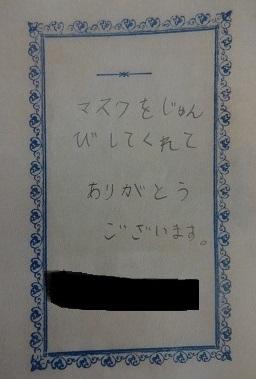 マスクをじゅん
びしてくれて
ありがとう
ございます。